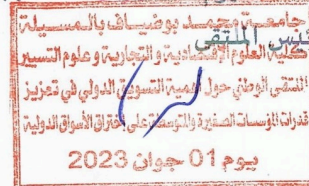 جامعة محمد بوضياف بالمسيلة
كلية العلوم الاقتصادية والتجارية وعلوم التسيير
الملتقى الوطني حول أهمية التسويق الدولي في تعزيز
قدرات المؤسسات الصغيرة والمتوسطة على اختراق الأسواق الدولية
يوم 01 جوان 2023